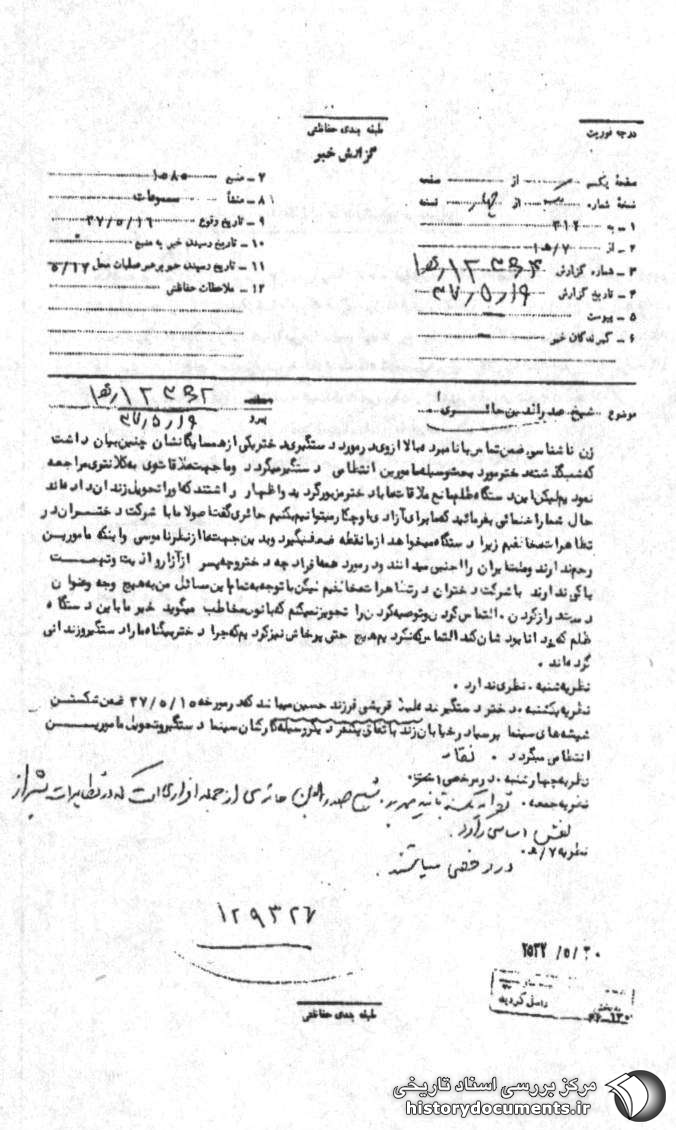 درجه فوریت
طبقه بندی حفاظتی
گزارش خبر
صفحه یکم از صفحه
نسخه شماره از چهار نسخه
۱ ـ به ۳۱۲
۲ ـ از ۷ / ه‍ ۱
۳ ـ شماره گزارش ۱۲۳۹۴ / ه‍ ۱
۴ ـ تاریخ گزارش ۳۷/۵/۱۹
۵ ـ پیوست
۶ ـ گیرندگان خبر
۷ ـ منبع ۱۵۸۵
۸ ـ منشأ مسموعات
۹ ـ تاریخ وقوع ۳۷/۵/۱۶
۱۰ ـ تاریخ رسیدن خبر به منبع
۱۱ ـ تاریخ رسیدن خبر برهبر عملیات محل ۵/۱۷
۱۲ ـ ملاحظات حفاظتی
موضوع شیخ صدرالدین حائری
پیرو ۱۲۳۹۲ / ه‍ ۱
۳۷/۵/۱۹
زن ناشناسی ضمن تماس با نامبرده بالا از وی در مورد دستگیری دختر یکی از همسایگانشان چنین بیان داشت
که شب گذشته دختر مورد بحث وسیله مامورین انتظامی دستگیر میگردد و ما جهت ملاقات وی به کلانتری مراجعه
نمودیم لیکن این دستگاه ظلم مانع ملاقات ما با دختر مزبور گردید و اظهار داشتند که او را تحویل زندان داده‌اند
حال شما راهنمائی بفرمائید که ما برای آزادی او چکار میتوانیم بکنیم حائری گفت اصولا ما با شرکت دختران در
تظاهرات مخالفیم زیرا دستگاه میخواهد از ما نقطه ضعف بگیرد و بدین جهت ما از نظر ناموسی و اینکه مامورین
رحم ندارند و ملت ایران را اجنبی میدانند و در مورد همه افراد چه دختر و چه پسر از آزار و اذیت و تهمت
باکی ندارند با شرکت دختران در تظاهرات مخالفیم لیکن با توجه به تمام این مسائل من به هیچ وجه و عنوان
دست دراز کردن، التماس کردن و توصیه کردن را تجویز نمیکنم که بانوی مخاطب میگوید خیر ما با این دستگاه
ظلم که پدر انا بودشان کند التماس که نکردیم هیچ حتی پرخاش نیز کردیم که چرا دختر بیگناه ما را دستگیر و زندانی
کرده‌اند .
نظریه شنبه . نظری ندارد .
نظریه یکشنبه . دختر دستگیر شده قریشی فرزند حسین میباشد که در مورخه ۳۷/۵/۱۵ ضمن شکستن
شیشه‌های سینما پرسیا در خیابان زند باتفاق یکنفر دیگر وسیله کارکنان سینما دستگیر و تحویل مامورین
انتظامی میگردد .
نظریه چهارشنبه . در مرخصی است
نظریه جمعه . شیخ صدرالدین حائری از جمله افرادی است که در تظاهرات شیراز
نقش اساسی را دارد .
نظریه ۷ / ه‍ . در مرخصی میباشند .
۱۲۹۳۲۶
۲۵۳۷/۵/۳۰
طبقه بندی حفاظتی
مرکز بررسی اسناد تاریخی
historydocuments.ir